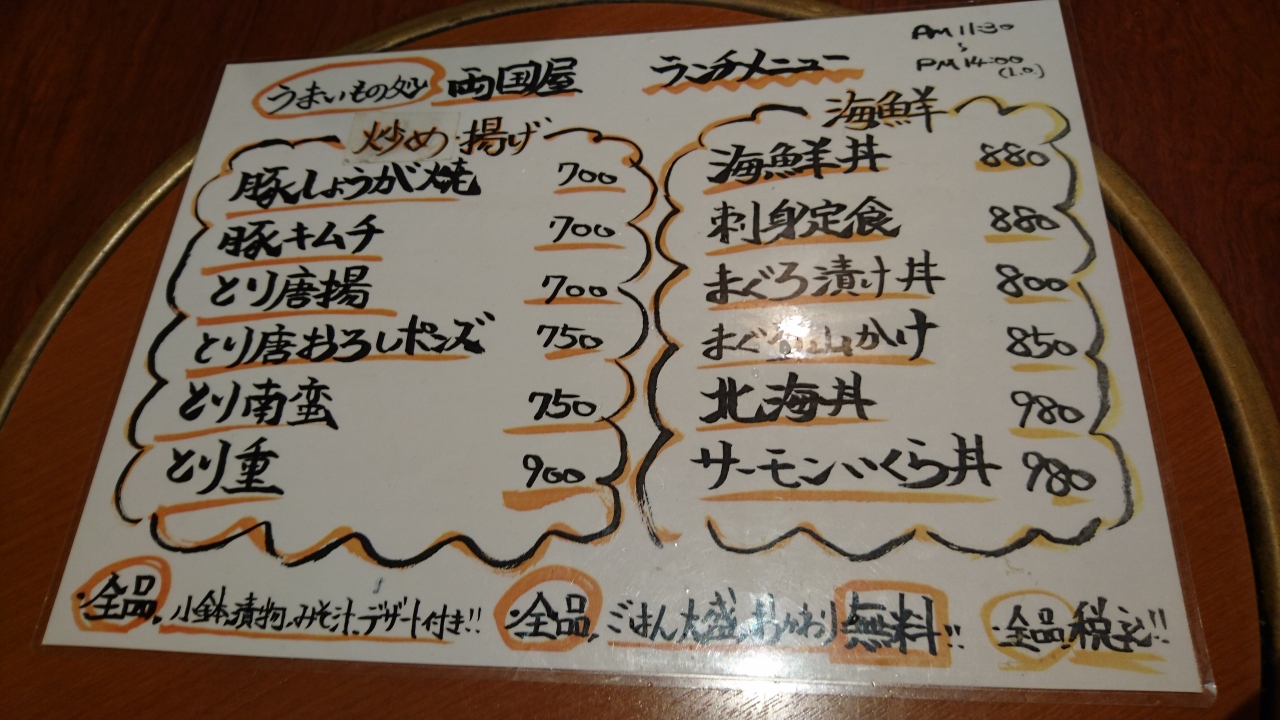 うまいもの処 両国屋 ランチメニュー
AM 11:30
〜
PM 14:00
(L.O.)
炒め・揚げ
豚しょうが焼 700
豚キムチ 700
とり唐揚 700
とり唐おろしポンズ 750
とり南蛮 750
とり重 900
海鮮
海鮮丼 880
刺身定食 880
まぐろ漬け丼 800
まぐろ山かけ 850
北海丼 980
サーモンいくら丼 980
・全品、小鉢、漬物、みそ汁、デザート付き!!
・全品、ごはん大盛、おかわり無料!!
・全品、税込!!